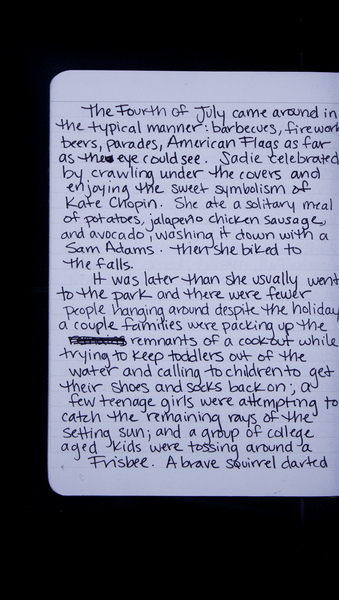 The Fourth of July came around in
the typical manner: barbecues, firework
beers, parades, American Flags as far
as the eye could see. Sadie celebrated
by crawling under the covers and
enjoying the sweet symbolism of
Kate Chopin. She ate a solitary meal
of potatoes, jalapeño chicken sausage,
and avocado, washing it down with a
Sam Adams. Then she biked to
the falls.
It was later than she usually went
to the park and there were fewer
people hanging around despite the holiday
a couple families were packing up the
remnants of a cookout while
trying to keep toddlers out of the
water and calling to children to get
their shoes and socks back on; a
few teenage girls were attempting to
catch the remaining rays of the
setting sun; and a group of college
aged kids were tossing around a
Frisbee. A brave squirrel darted